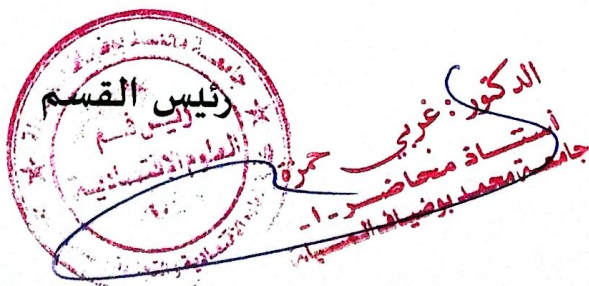 رئيس القسم
رئيس قسم
العلوم الاقتصادية
الدكتور: غربي حمزة
أستاذ محاضر -أ-
جامعة محمد بوضياف المسيلة